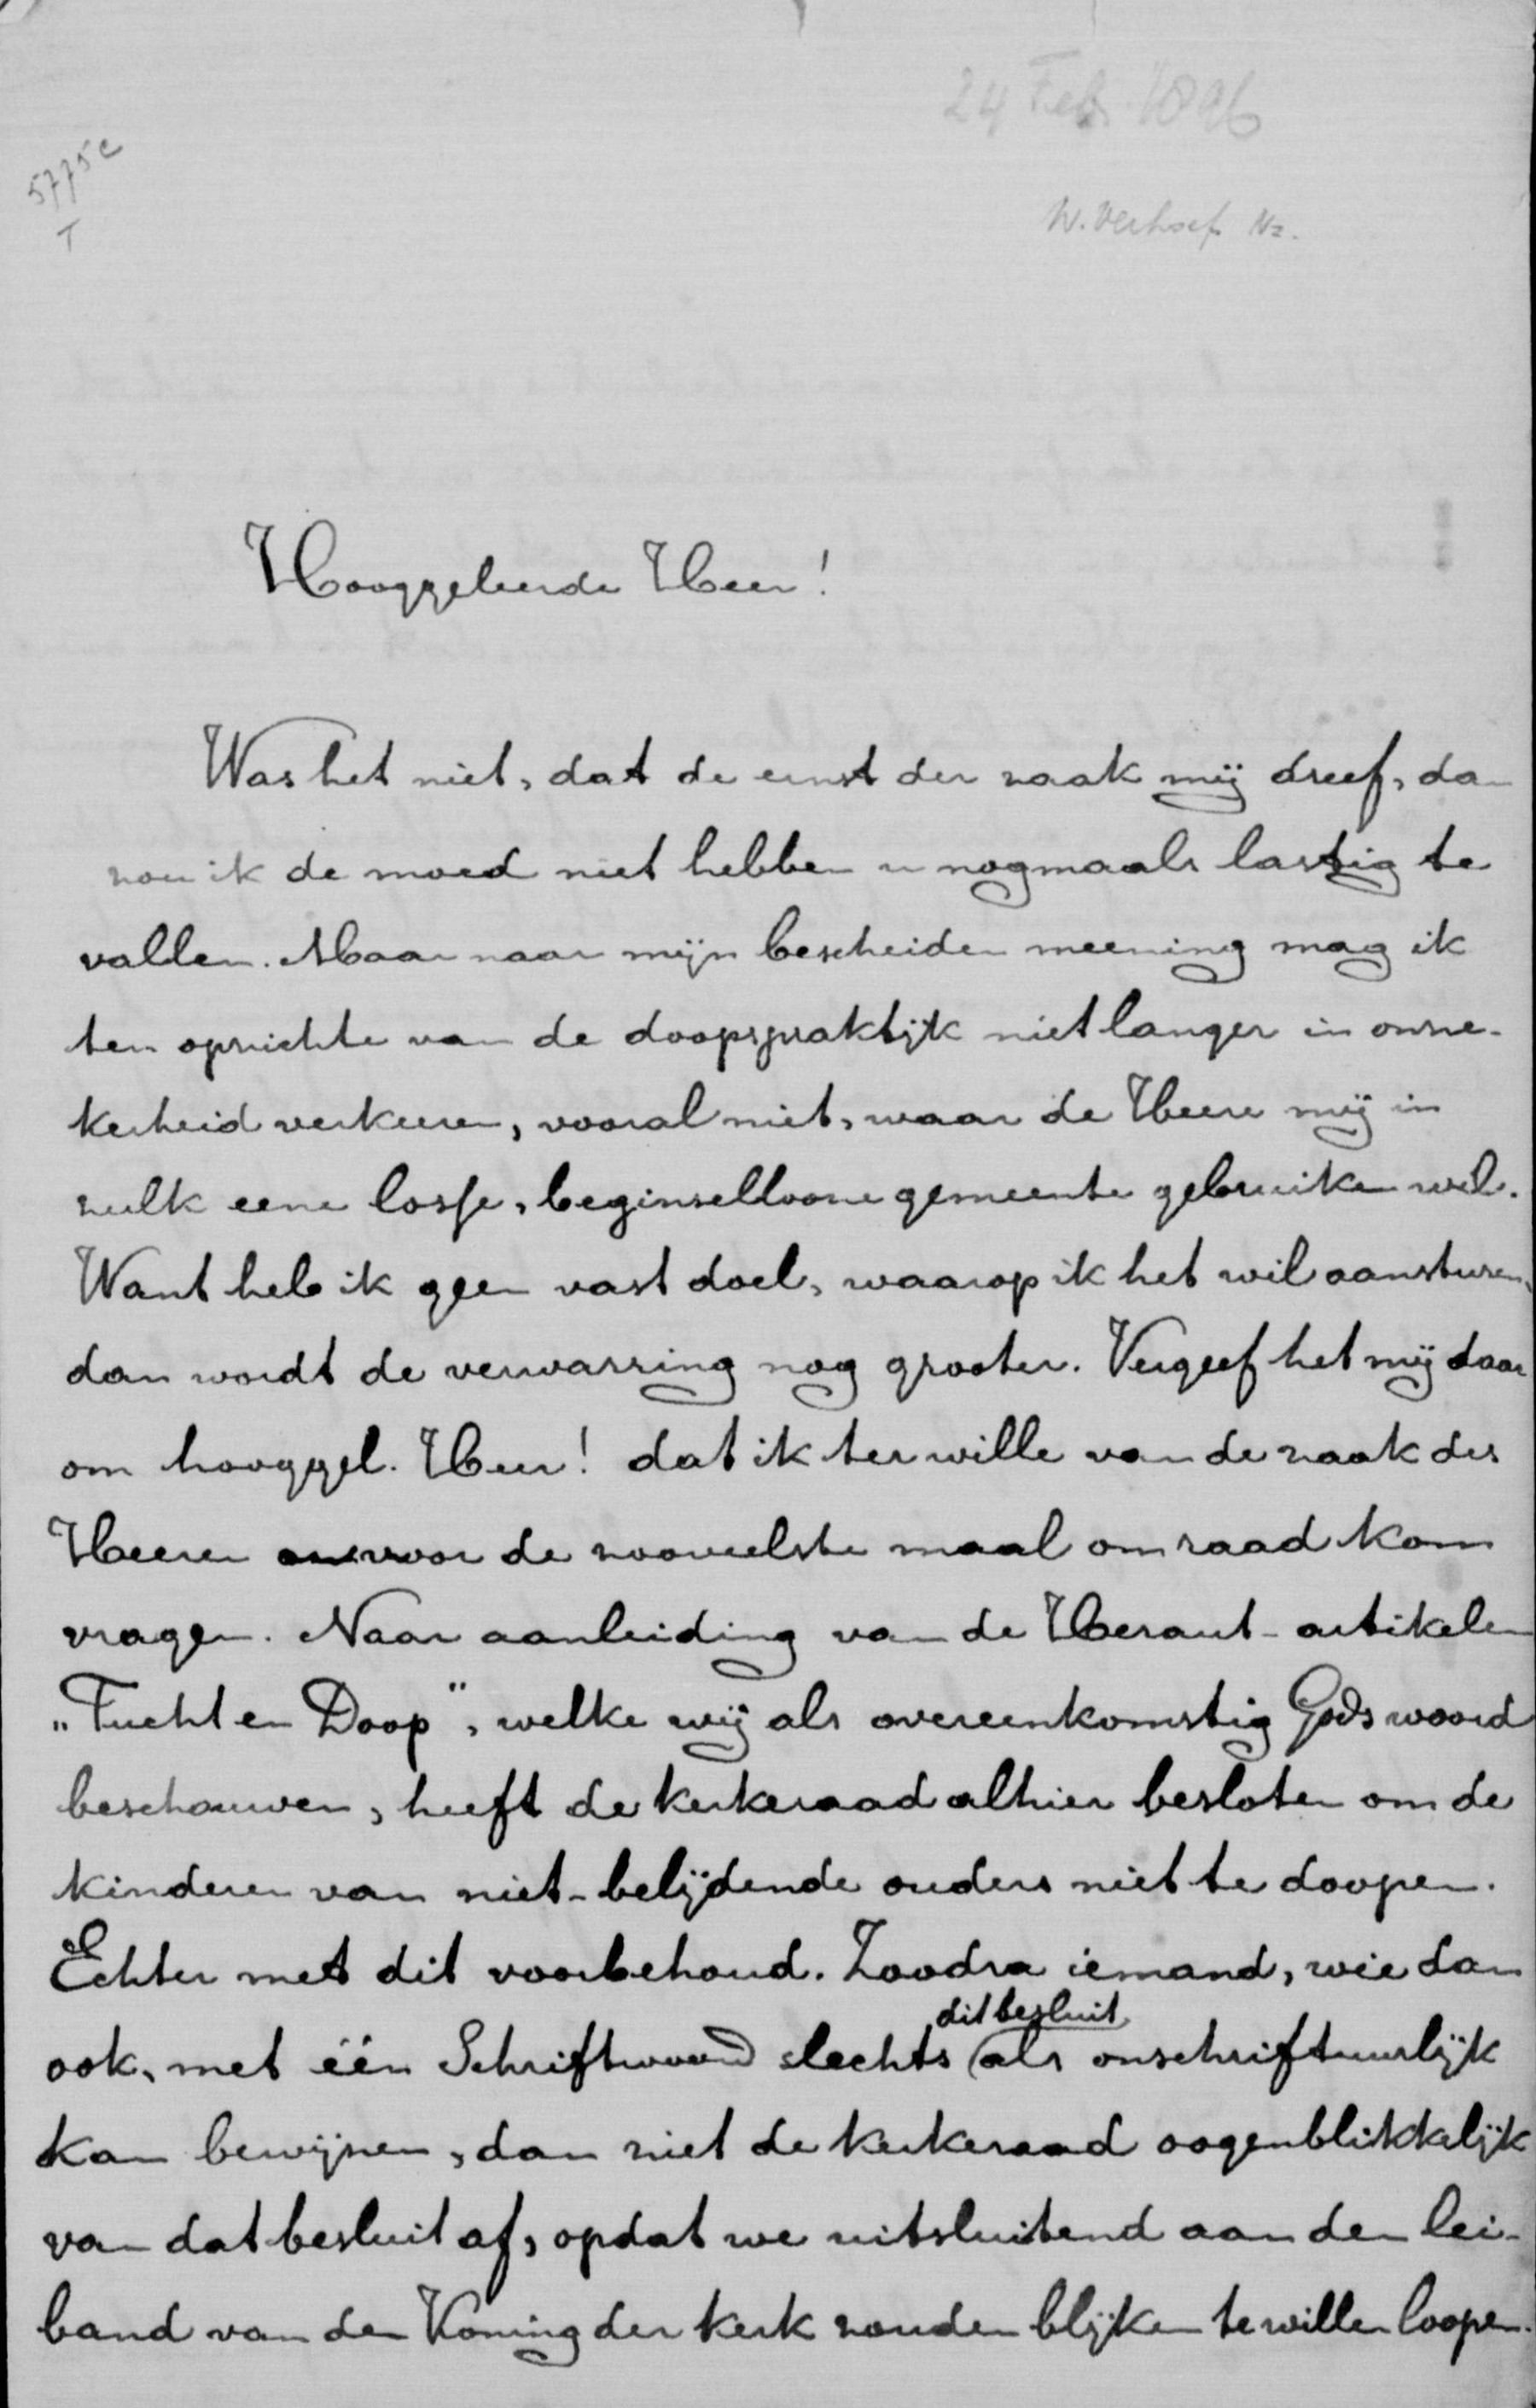 24 Feb. 1896
5775e
T
W. Verhoef Nz.
Hooggeleerde Heer!
Was het niet, dat de ernst der zaak mij dreef, dan
zou ik de moed niet hebben u nogmaals lastig te
vallen. Maar naar mijn bescheiden meening mag ik
ten opzichte van de doopspraktijk niet langer in onze-
kerheid verkeeren, vooral niet, waar de Heere mij in
zulk eene losse, beginsellooze gemeente gebruiken wil.
Want heb ik geen vast doel, waarop ik het wil aansturen,
dan wordt de verwarring nog grooter. Vergeef het mij daar
om hooggel. Heer! dat ik ter wille van de zaak des
Heeren voor de zooveelste maal om raad kom
vragen. Naar aanleiding van de Heraut-artikelen
„Tucht en Doop", welke wij als overeenkomstig Gods woord
beschouwen, heeft de kerkeraad alhier besloten om de
kinderen van niet-belijdende ouders niet te doopen.
Echter met dit voorbehoud. Zoodra iemand, wie dan
dit besluit
ook, met één Schriftwoord slechts als onschriftuurlijk
kan bewijzen, dan ziet de kerkeraad oogenblikkelijk
van dat besluit af, opdat we uitsluitend aan den lei-
band van den Koning der kerk zouden blijken te willen loopen.